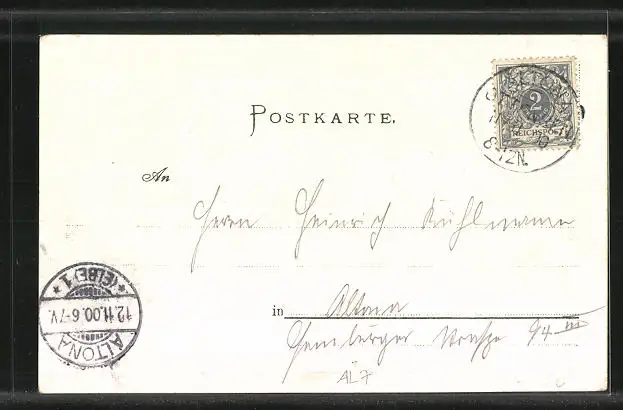 2
REICHSPOST
8-12N.
POSTKARTE.
An
Herrn Heinrich Kühlmann
in Altona
Hamburger Strasse 94 III
ALTONA
12.11.00.6-7V.
* (ELBE) 1 *
AL7